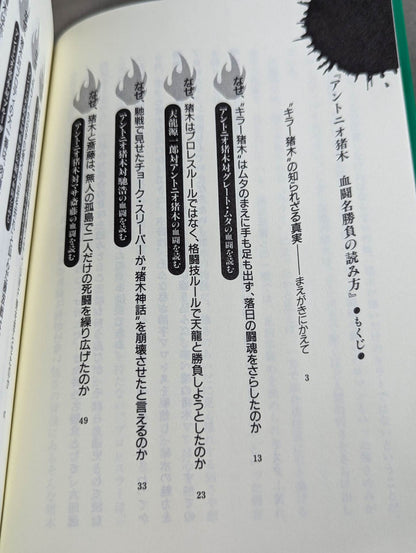 『アントニオ猪木 血闘名勝負の読み方』●もくじ●
“キラー猪木”の知られざる真実——まえがきにかえて 3
なぜ、“キラー猪木”はムタのまえに手も足も出ず、落日の闘魂をさらしたのか 13
『アントニオ猪木対グレート・ムタの血闘を読む』
なぜ、猪木はプロレスルールではなく、格闘技ルールで天龍と勝負しようとしたのか 23
『天龍源一郎対アントニオ猪木の血闘を読む』
なぜ、馳戦で見せたチョーク・スリーパーが“猪木神話”を崩壊させたと言えるのか 33
『アントニオ猪木対馳浩の血闘を読む』
なぜ、猪木と斎藤は、無人の孤島で二人だけの死闘を繰り広げたのか 49
『アントニオ猪木対マサ斎藤の血闘を読む』